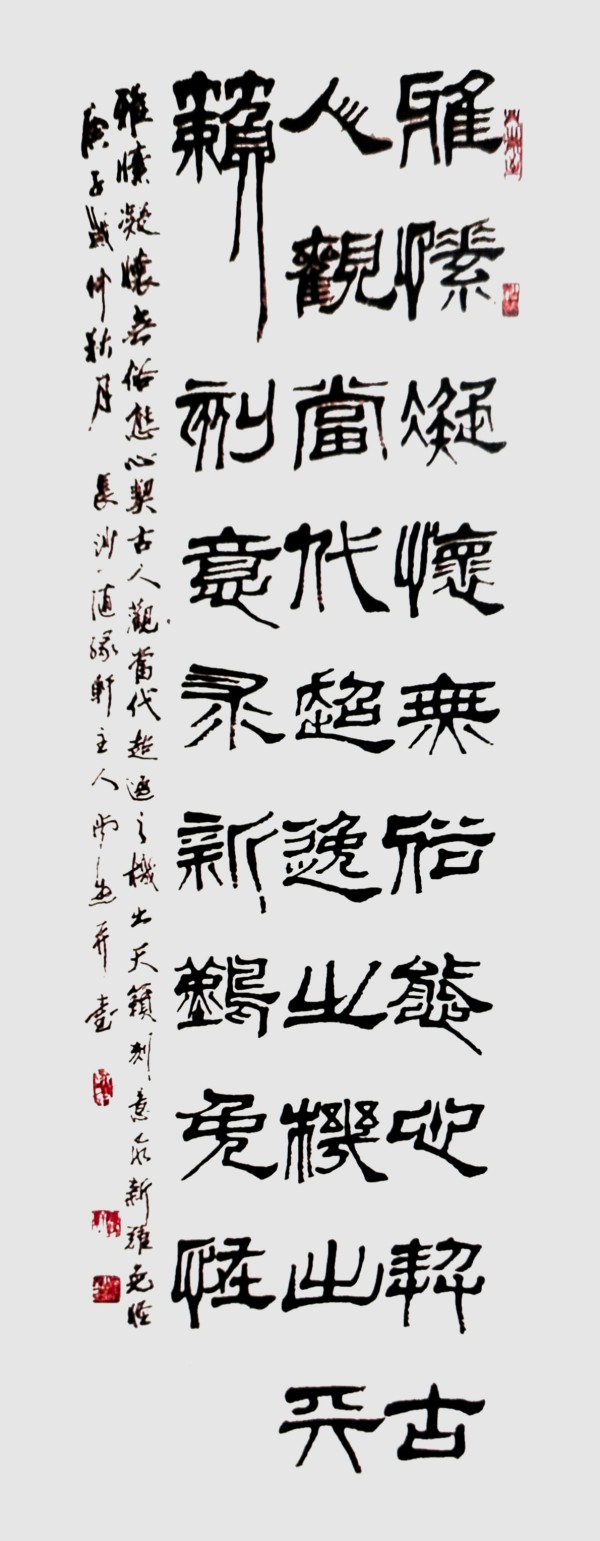 雅愫凝懷無俗態心契古
人觀當代超逸之機出天
籟刻意求新難免怪
雅愫凝懷無俗態心契古人觀當代超逸之機出天籟刻意求新難免怪
庚子歲仲秋月 長沙隨緣軒主人